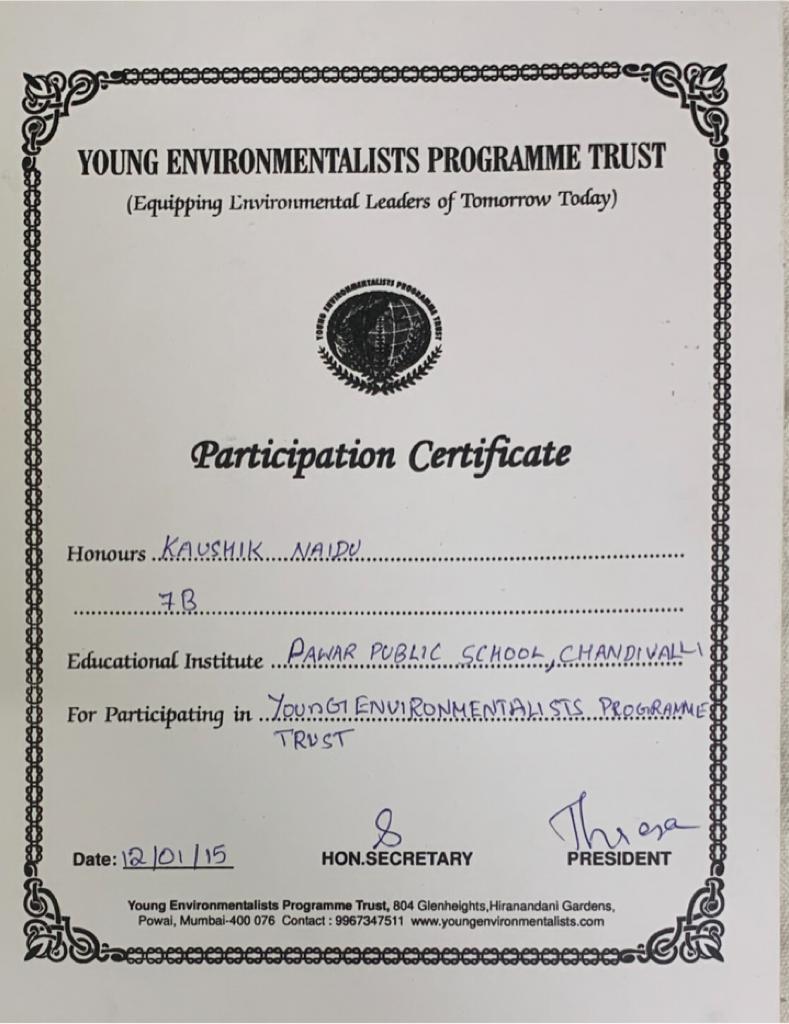 YOUNG ENVIRONMENTALISTS PROGRAMME TRUST
(Equipping Environmental Leaders of Tomorrow Today)
YOUNG ENVIRONMENTALISTS PROGRAMME TRUST
Participation Certificate
Honours KAUSHIK NAIDU
7B
Educational Institute PAWAR PUBLIC SCHOOL, CHANDIVALLI
For Participating in YOUNG ENVIRONMENTALISTS PROGRAMME
TRUST
Theresa
Date: 12/01/15 HON.SECRETARY PRESIDENT
Young Environmentalists Programme Trust, 804 Glenheights,Hiranandani Gardens,
Powai, Mumbai-400 076 Contact : 9967347511 www.youngenvironmentalists.com